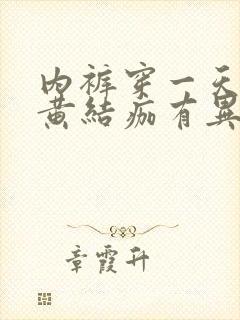 内裤穿一天
黄結痂有異
章霞升